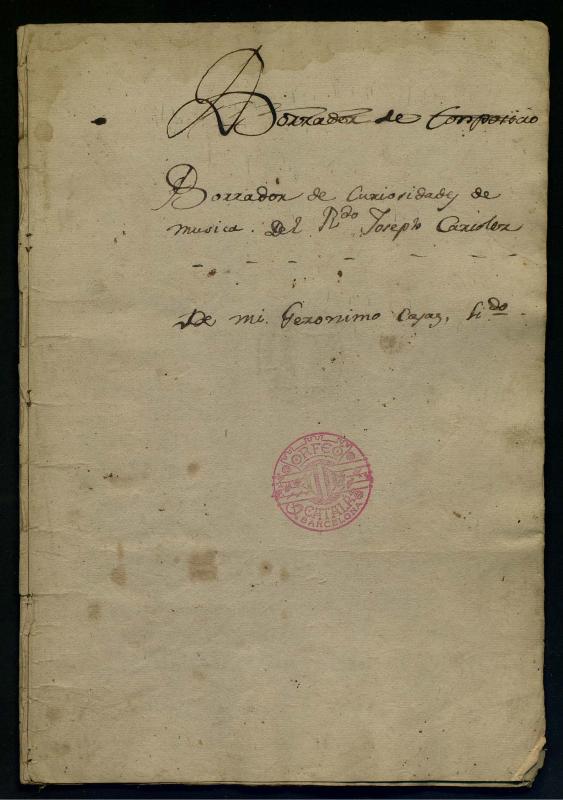 Borrador de Composicio
Borrador de Curiosidades de
musica. Del R.do Joseph Carisler
De mi Geronimo Casas,
ORFEÓ
CATALÀ
BARCELONA